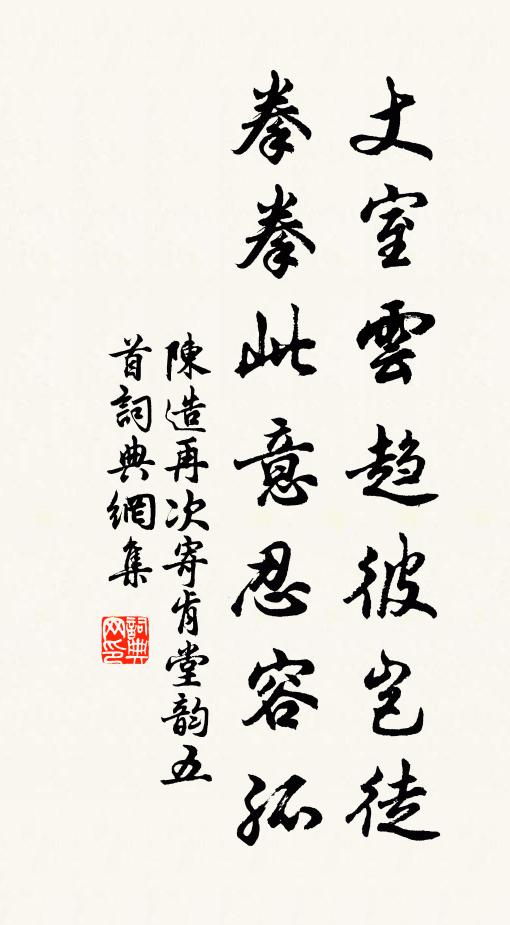 丈室雲趨彼豈徒
拳拳此意忍容孤
陳造再次寄肯堂韵五
首詞典網集
詞典
网印